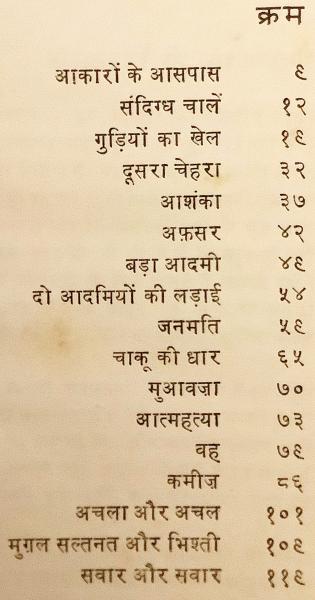 क्रम
आकारों के आसपास ९
संदिग्ध चालें १२
गुड़ियों का खेल १९
दूसरा चेहरा ३२
आशंका ३७
अफ़सर ४२
बड़ा आदमी ४९
दो आदमियों की लड़ाई ५४
जनमति ५९
चाकू की धार ६५
मुआवज़ा ७०
आत्महत्या ७३
वह ७९
कमीज़ ८६
अचला और अचल १०१
मुग़ल सल्तनत और भिश्ती १०९
सवार और सवार ११९